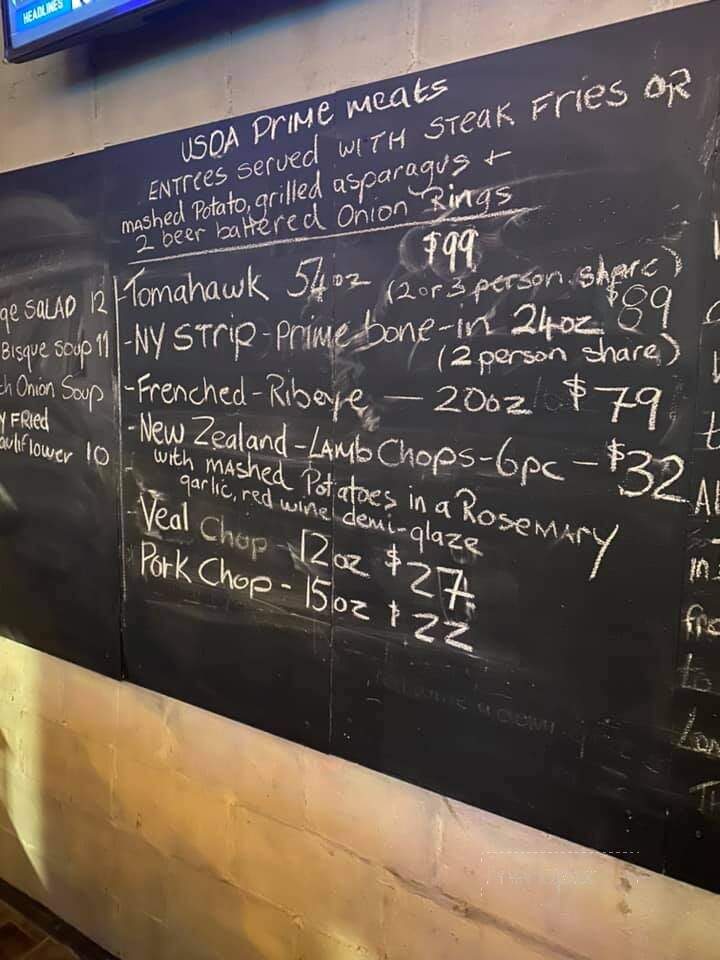 HEADLINES
USDA Prime meats
ENTrees served WITH STEAK FRIES OR
mashed Potato, grilled asparagus +
2 beer battered Onion Rings
$99
-Tomahawk 54oz (2 or 3 person share)
-NY STRIP-Prime bone-in 24oz $89
(2 person share)
-Frenched-Ribeye — 20oz $79
-New Zealand-LAMb CHOPS-6pc-$32
with mashed Potatoes in a Rosemary
garlic, red wine demi-glaze
-Veal Chop-12oz $27
Pork Chop-15oz $22
SALAD 12
Bisque soup 11
Onion Soup
FRied
10